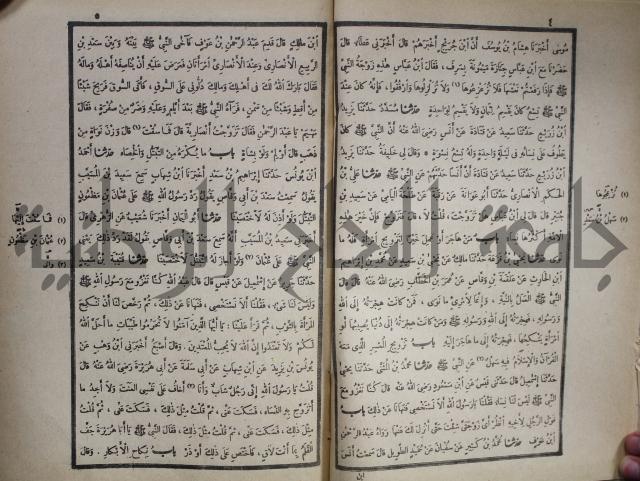 ٤
موسى أخبرنا هشام بن يوسف أن ابن جريج أخبرهم قال أخبرني عطاء قال
حضرنا مع ابن عباس جنازة ميمونة بسرف ، فقال ابن عباس هذه زوجة النبي
ﷺ فإذا رفعتم نعشها فلا تزعزعوها (١) ولا تزلزلوها وارفقوا ، فإنه كان عند
النبي ﷺ تسع كان يقسم لثمان ولا يقسم لواحدة حدثنا مسدد حدثنا يزيد
ابن زريع حدثنا سعيد عن قتادة عن أنس رضي الله عنه أن النبي ﷺ كان
يطوف على نسائه في ليلة واحدة وله تسع نسوة * وقال لي خليفة حدثنا يزيد
ابن زريع حدثنا سعيد عن قتادة أن أنسا حدثهم عن النبي ﷺ حدثنا علي بن
الحكم الأنصاري حدثنا أبو عوانة عن رقبة عن طلحة اليامي عن سعيد بن
جبير قال قال لي ابن عباس هل تزوجت قلت لا قال فتزوج فإن خير هذه
الأمة أكثرها نساء باب من هاجر أو عمل خيرا لتزويج امرأة فله ما
نوى حدثنا يحيى بن قزعة حدثنا مالك عن يحيى بن سعيد عن محمد بن إبراهيم
ابن الحارث عن علقمة بن وقاص عن عمر بن الخطاب رضي الله عنه قال قال
النبي ﷺ العمل بالنية ، وإنما لامرئ ما نوى ، فمن كانت هجرته إلى الله
ورسوله ، فهجرته إلى الله ورسوله ﷺ ومن كانت هجرته إلى دنيا يصيبها أو
امرأة ينكحها ، فهجرته إلى ما هاجر إليه باب تزويج المعسر الذي معه
القرآن والإسلام فيه سهل (٢) عن النبي ﷺ حدثنا محمد بن المثنى حدثنا يحيى
حدثنا إسمعيل قال حدثني قيس عن ابن مسعود رضي الله عنه قال كنا نغزو مع
النبي ﷺ ليس لنا نساء فقلنا يا رسول الله ألا نستخصي فنهانا عن ذلك باب
قول الرجل لأخيه انظر أي زوجتي شئت حتى أنزل لك عنها رواه عبد الرحمن
ابن عوف حدثنا محمد بن كثير عن سفيان عن حميد الطويل قال سمعت أنس
ابن
(١)
(٢)
٥
ابن مالك قال قدم عبد الرحمن بن عوف فآخى النبي ﷺ بينه وبين سعد بن
الربيع الأنصاري وعند الأنصاري امرأتان فعرض عليه أن يناصفه أهله وماله
فقال بارك الله لك في أهلك ومالك دلوني على السوق ، فأتى السوق فربح شيئا
من أقط وشيئا من سمن ، فرآه النبي ﷺ بعد أيام وعليه وضر من صفرة ، فقال
مهيم يا عبد الرحمن فقال تزوجت أنصارية قال فما سقت (١) قال وزن نواة من
ذهب قال أولم ولو بشاة باب ما يكره من التبتل والخصاء حدثنا أحمد
ابن يونس حدثنا إبراهيم بن سعد أخبرنا ابن شهاب سمع سعيد بن المسيب
يقول سمعت سعد بن أبي وقاص يقول رد رسول الله ﷺ على عثمان بن مظعون
التبتل ولو أذن له لاختصينا حدثنا أبو اليمان أخبرنا شعيب عن الزهري قال
أخبرني سعيد بن المسيب أنه سمع سعد بن أبي وقاص يقول لقد رد ذلك يعني
النبي ﷺ على عثمان (٢) ولو أجاز له التبتل لاختصينا حدثنا قتيبة بن سعيد
حدثنا جرير عن إسمعيل عن قيس قال قال عبد الله كنا نغزو مع رسول الله ﷺ
وليس لنا شيء ، فقلنا ألا نستخصي ، فنهانا عن ذلك ، ثم رخص لنا أن ننكح
المرأة بالثوب ، ثم قرأ علينا : يا أيها الذين آمنوا لا تحرموا طيبات ما أحل الله
لكم ولا تعتدوا إن الله لا يحب المعتدين . وقال أصبغ أخبرني ابن وهب عن
يونس بن يزيد عن ابن شهاب عن أبي سلمة عن أبي هريرة رضي الله عنه قال
قلت يا رسول الله إني رجل شاب وأنا (٣) أخاف على نفسي العنت ولا أجد ما
أتزوج به النساء ، فسكت عني ، ثم قلت مثل ذلك ، فسكت عني ، ثم قلت
مثل ذلك ، فسكت عني ، ثم قلت مثل ذلك ، فقال النبي ﷺ يا أبا هريرة جف
القلم بما أنت لاق ، فاختص على ذلك أو ذر باب نكاح الأبكار . وقال
(١)
(٢) عثمان بن مظعون
(٣)
جامعة النجاح الوطنية